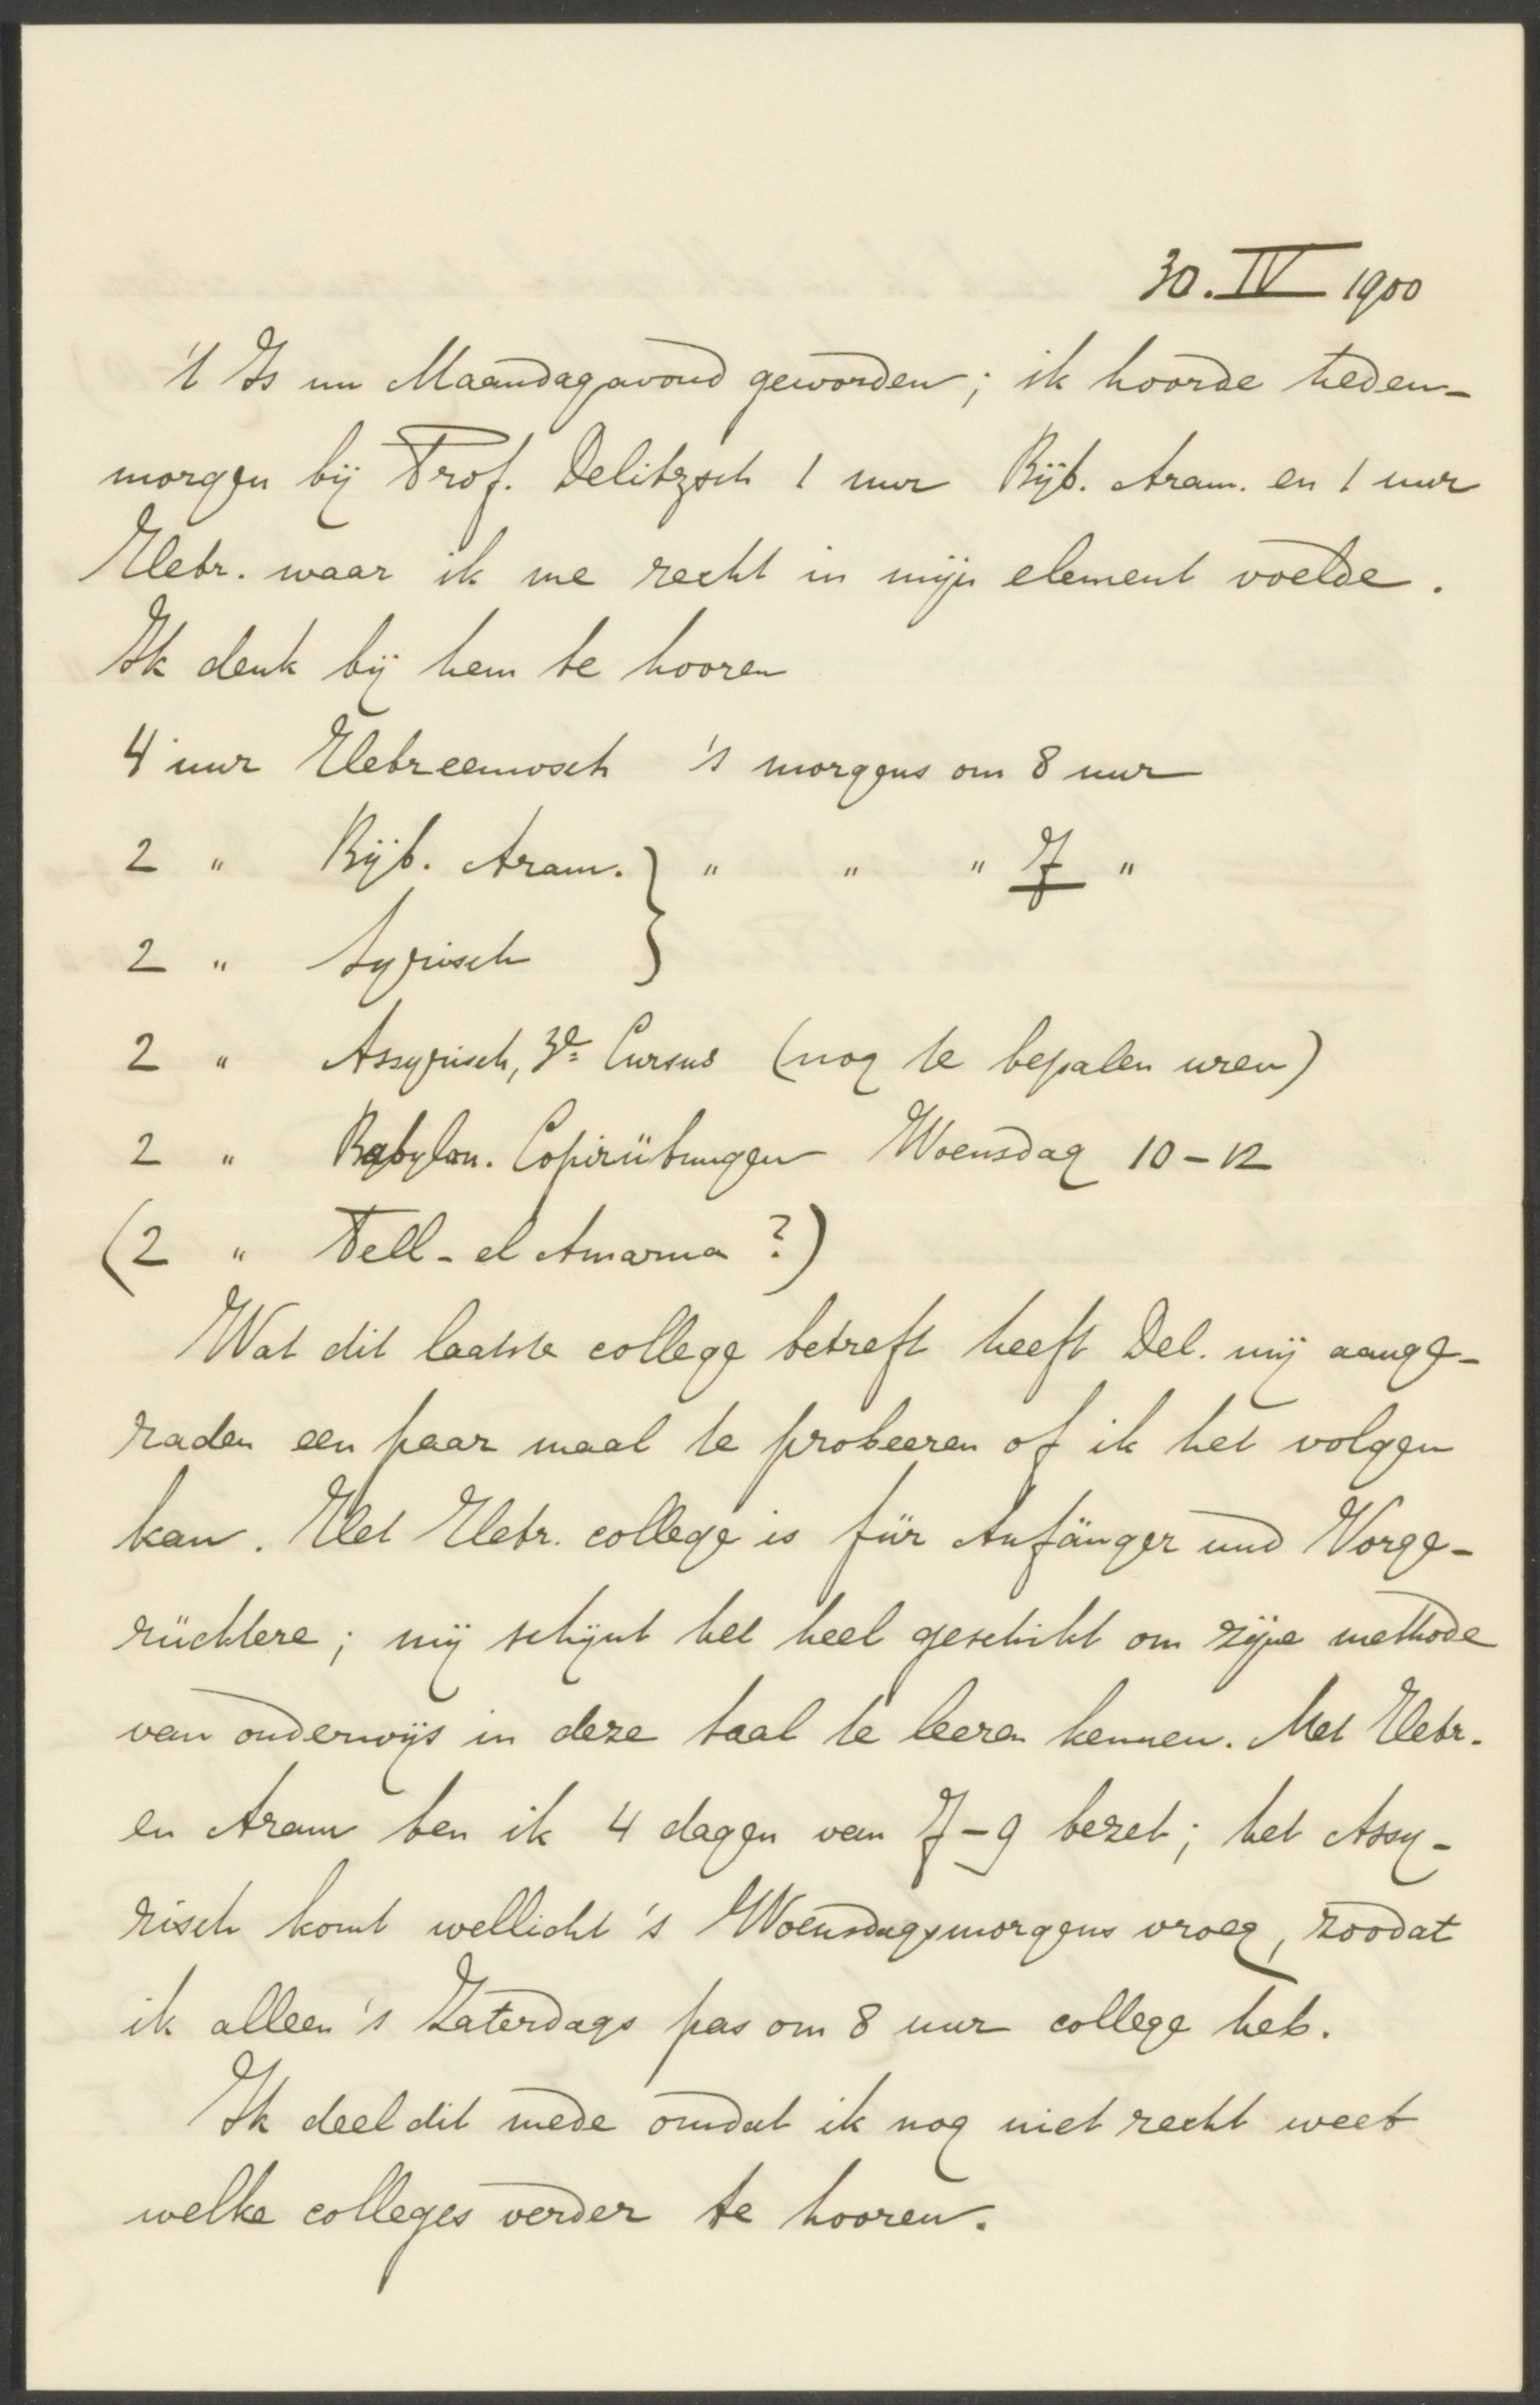 30. IV 1900
't Is nu Maandagavond geworden; ik hoorde heden-
morgen bij Prof. Delitzsch 1 uur Bijb. Aram. en 1 uur
Hebr. waar ik me recht in mijn element voelde.
Ik denk bij hem te hooren
4 uur Hebreeuwsch 's morgens om 8 uur
2 " Bijb. Aram. } " " " 7 "
2 " Syrisch
2 " Assyrisch, 3e Cursus (nog te bepalen uren)
2 " Babylon. Copirübungen Woensdag 10-12
(2 " Tell-el Amarna ?)
Wat dit laatste college betreft heeft Del. mij aange-
raden een paar maal te probeeren of ik het volgen
kan. Het Hebr. college is für Anfänger und Vorge-
rücktere; mij schijnt het heel geschikt om zijne methode
van onderwijs in deze taal te leeren kennen. Met Hebr.
en Aram ben ik 4 dagen van 7-9 bezet; het Assy-
risch komt wellicht 's Woensdagsmorgens vroeg, zoodat
ik alleen 's Zaterdags pas om 8 uur college heb.
Ik deel dit mede omdat ik nog niet recht weet
welke colleges verder te hooren.